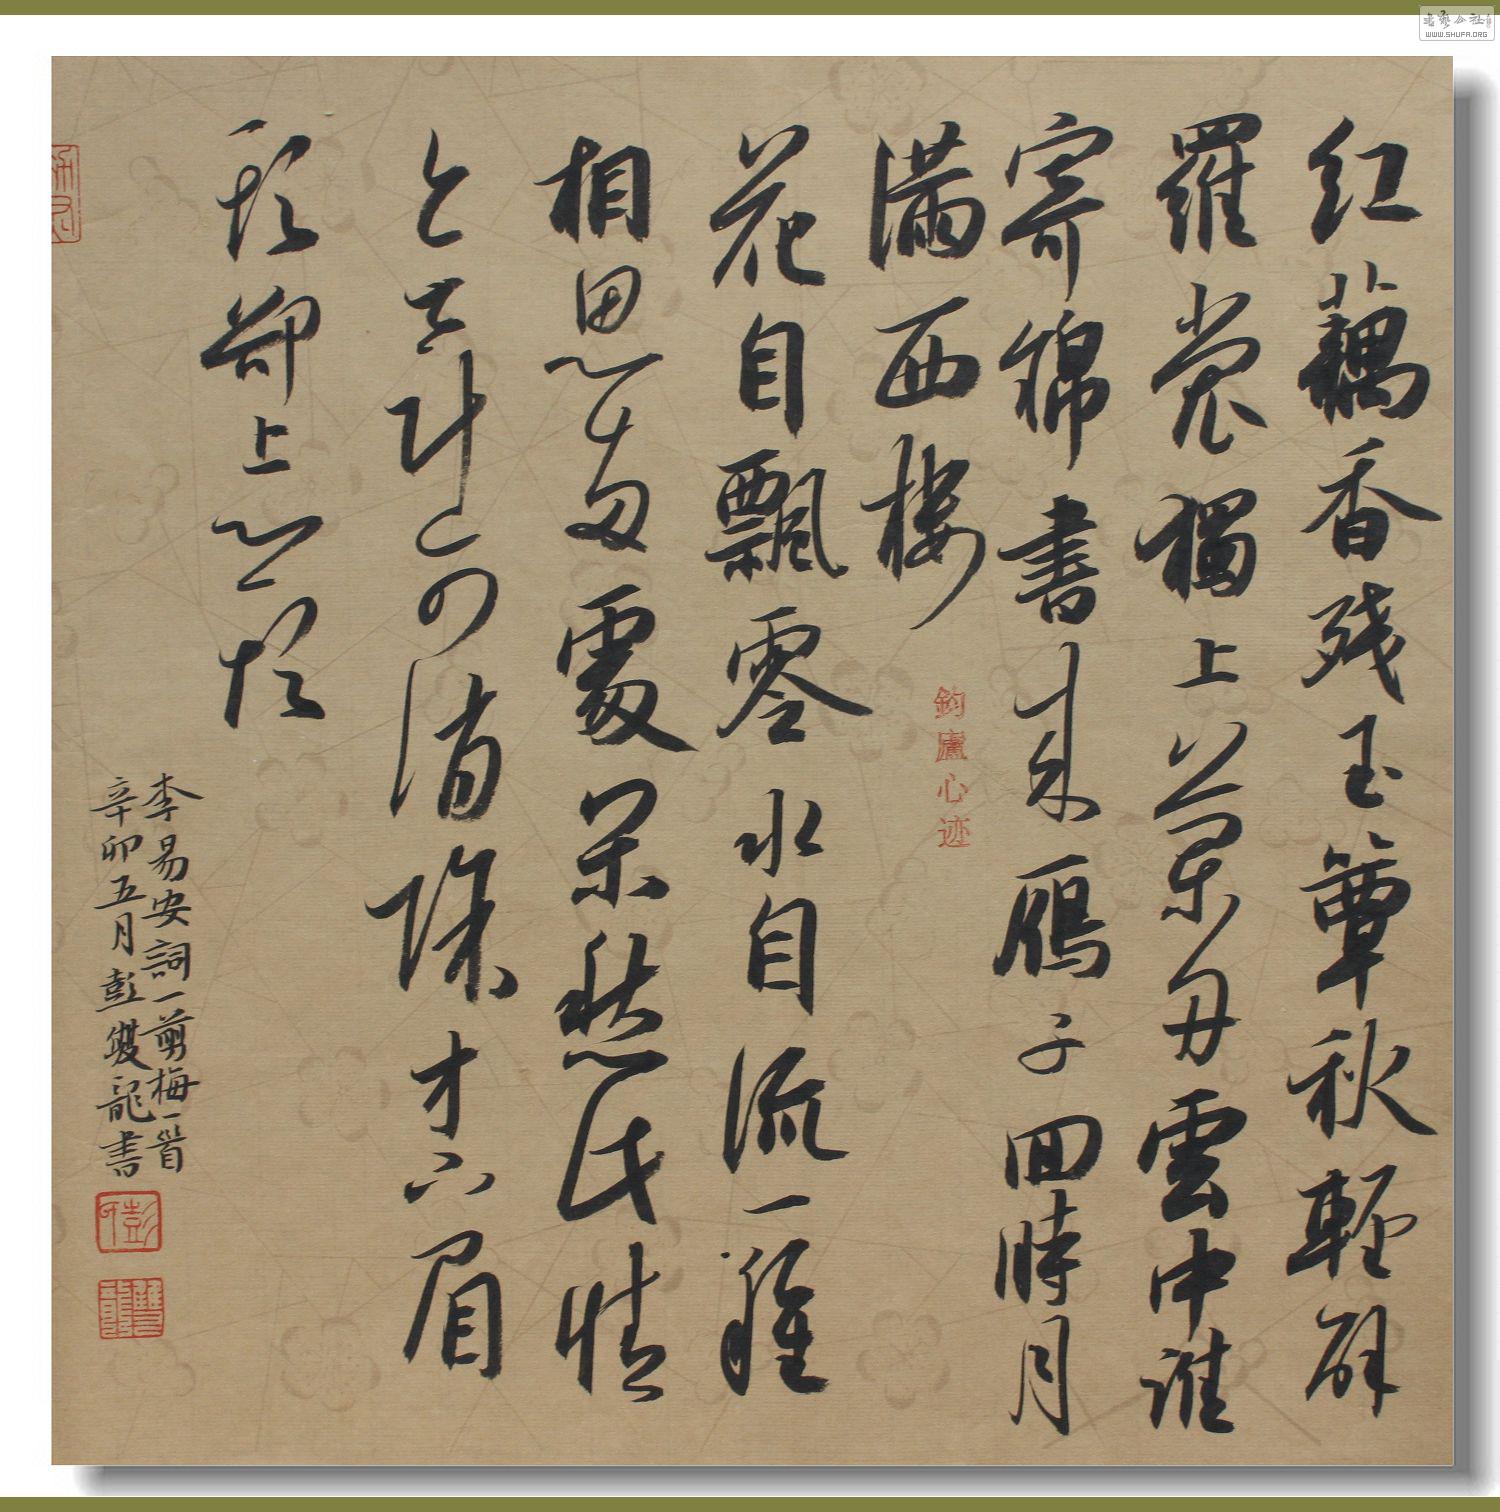 红藕香残玉簟秋輕解
羅裳獨上蘭舟雲中誰
寄錦書来雁子回時月
滿西樓
花自飄零水自流一種
相思兩處閑愁此情
無計可消除才下眉
頭卻上心頭
李易安詞一剪梅一首
辛卯五月彭雙龍書
鈞廬心迹
彭印
雙龍
书艺公社
WWW.SHUFA.ORG